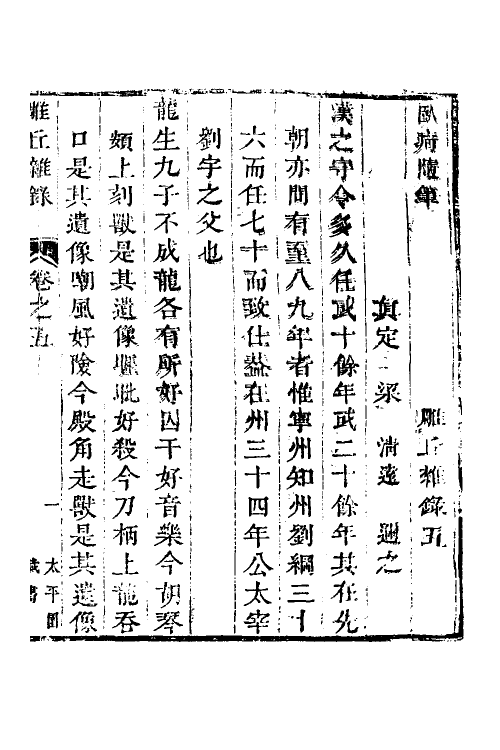 臥痾隨筆　雕丘雜錄五
真定　梁　清遠　邇之
漢之守令多久任或十餘年或二十餘年其在先
朝亦間有至八九年者惟寧州知州劉綱三十
六而任七十而致仕葢在州三十四年公太宰
劉宇之父也
龍生九子不成龍各有所好囚干好音樂今胡琴
頭上刻獸是其遺像睚眦好殺今刀柄上龍吞
口是其遺像嘲風好險今殿角走獸是其遺像
雕丘雜錄　卷之五　一　太平園藏書